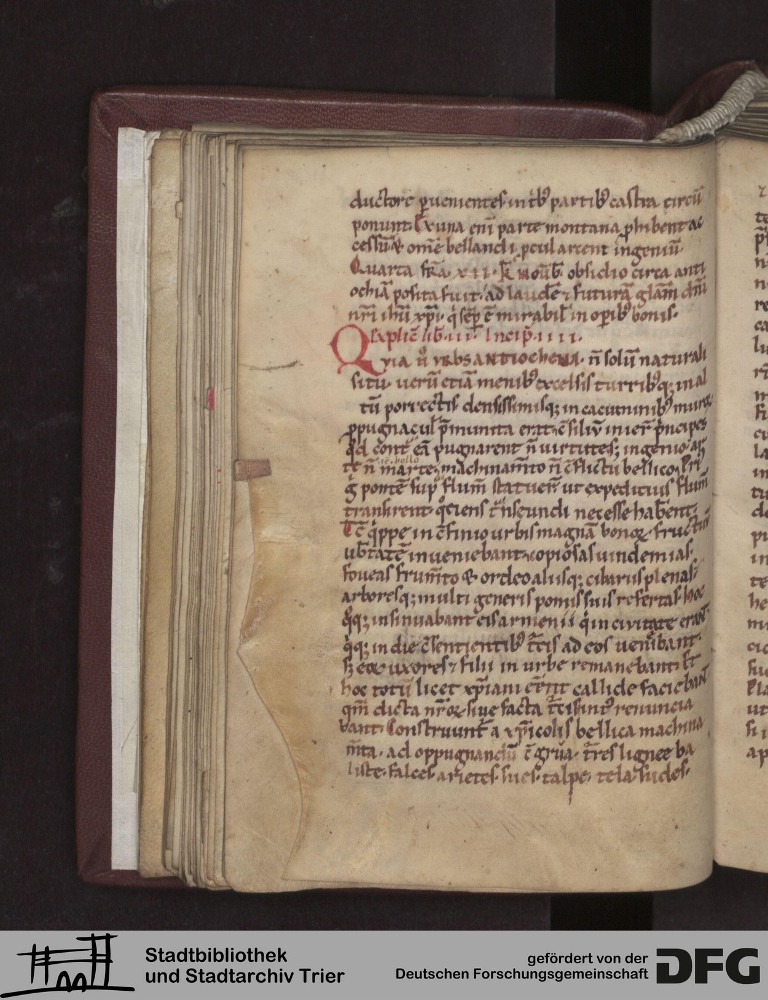 ductore ꝑuenientes in tb᷒ partib᷒ castra circū
ponunt. Ex una eni parte montana ꝓhibent ac
cessū & omē bellandi ꝓcul arcent ingeniū
Quarta fr̄a xii. kl̄ nouēb̄ obsidio circa anti
ochiā posita fuit. ad laudē ⁊ futurā gl̄am dn̄i
nr̄i ih̄u xp̄i. q̇ sēp ē mirabil̄ in oꝑib᷒ bonis.
Explic̄ lib̄. iii. Incip̄. iiii.
Qvia n̄ vrbs antiochena. n̄ solū naturali
situ. uerū etiā menib᷒ excelsis turrib᷒q; in al
tū porrectis densissimisq; in cacuminib᷒
ꝓpugnacul' p̄munita erat. principes
qd̄ cont̄ eā pugnarent n̄ uirtutes; ingenio
te n̄ marte. machinam̄to n̄ c̄flictu bellico.
g̊ pontē suꝑ flum̄ statuer̄ ut expeditius flum̄
transirent. q̇ciens t̄nseundi necesse habent.
q̇ppe in c̄finio urbis magnā bonoꝝ fructuū
ub̄tatē inueniebant. copiosas uindemias.
foueas frum̄to & ordeo aliisq; cibariis plenas.
arboresq; multi generis pomis suis refertas. hoc
q̊q; insinuabant eis armenii q̇ in ciuitate erant
q̇q; in die c̄sentientib᷒ t̄cis ad eos uenībant.
sꝫ eoꝝ uxores ⁊ filii in urbe remanebant. Et
hoc totū licet xp̄iani eēnt callide faciebant
qm̄ dicta nr̄oꝝ siue facta t̄cis int᷒ renuncia
bant. Construunt᷒ a xp̄icolis bellica machina
m̄ta. ad oppugnandū c̄grua. t̄res lignee. ba
liste. falces. arietes. sues. talpe. tela. sudes.
Stadtbibliothek
und Stadtarchiv Trier
gefördert von der
Deutschen Forschungsgemeinschaft
DFG